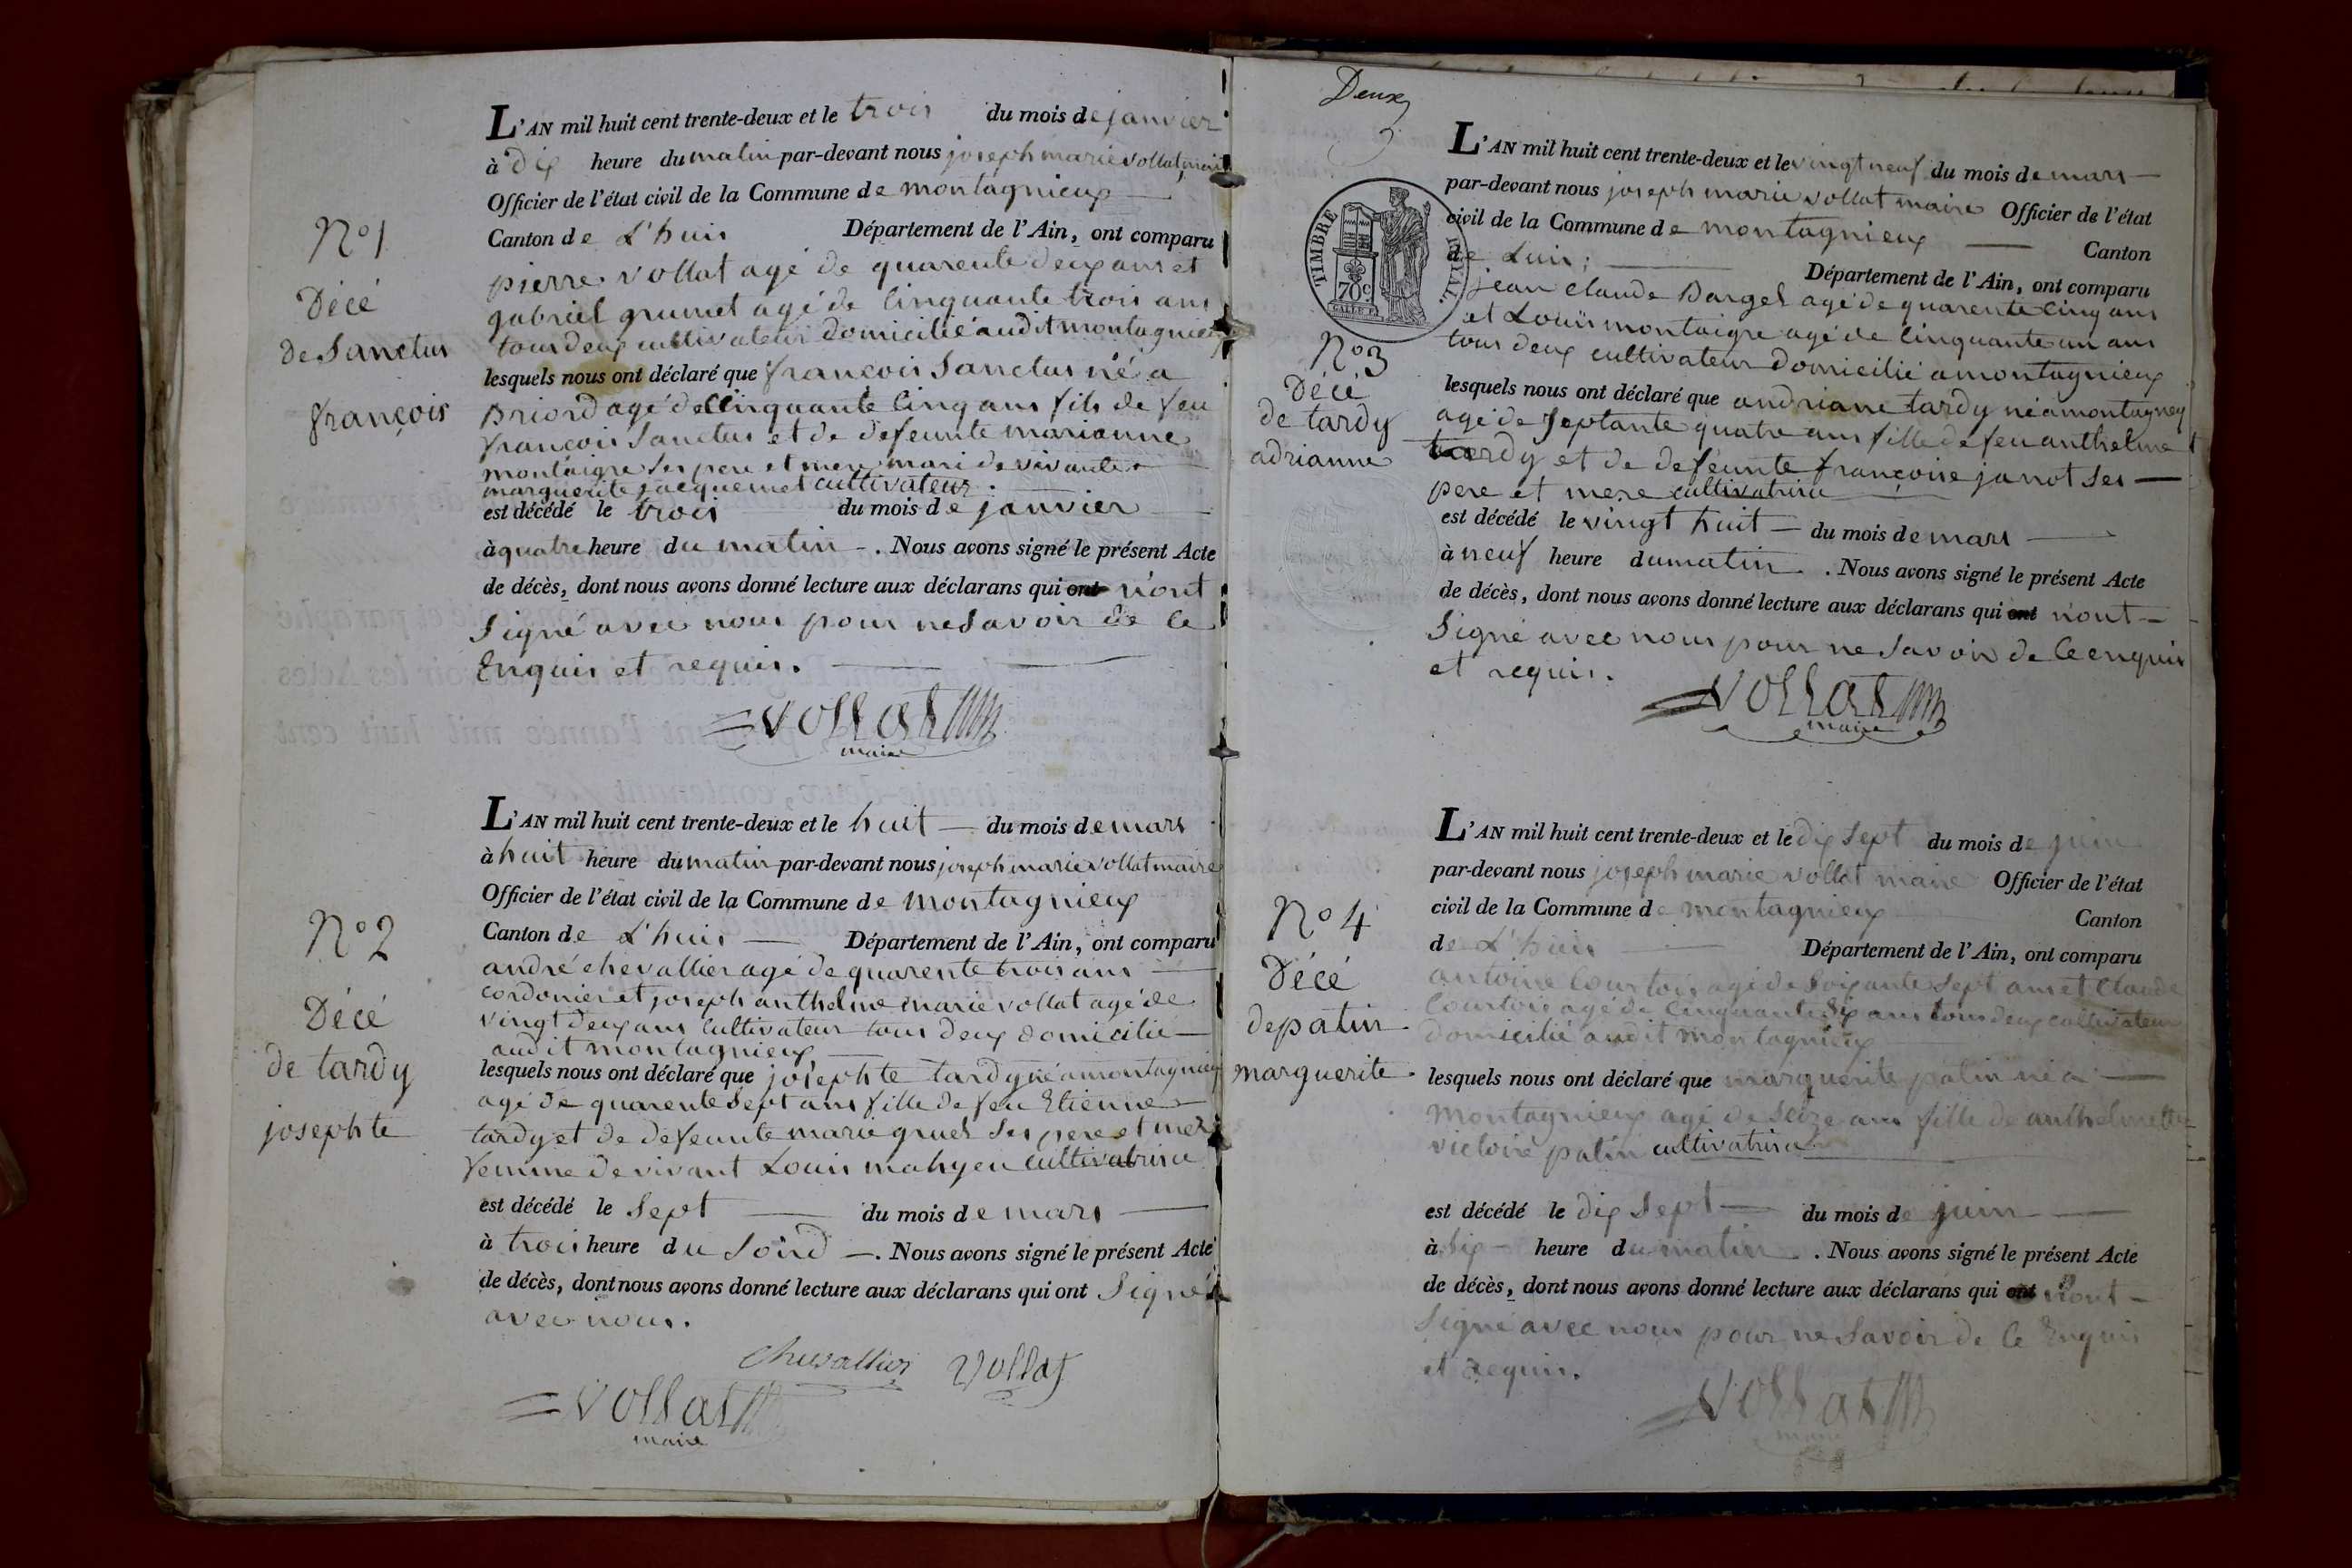 N° 1
Décé
de Sanctus
françois
L'AN mil huit cent trente-deux et le trois du mois de janvier
à dix heure du matin par-devant nous joseph marie vollat maire
Officier de l'état civil de la Commune de montagnieux
Canton de L'huis Département de l'Ain, ont comparu
pierre vollat agé de quarente deux ans et
gabriel grumet agé de Cinquante trois ans
tous deux cultivateur domicilié audit montagnieux
lesquels nous ont déclaré que françois Sanctus né a
Briord agé de Cinquante Cinq ans fils de feu
françois Sanctus et de defeunte marianne
montaigre ses pere et mere mari de vivante
marguerite jacquemet cultivateur.
est décédé le trois du mois de janvier
à quatre heure du matin. Nous avons signé le présent Acte
de décès, dont nous avons donné lecture aux déclarans qui ont n'ont
Signé avec nous pour ne Savoir de Ce
Enquis et requis.
Vollat
maire
N° 2
Décé
de tardy
josephte
L'AN mil huit cent trente-deux et le huit du mois de mars
à huit heure du matin par-devant nous joseph marie vollat maire
Officier de l'état civil de la Commune de montagnieux
Canton de L'huis Département de l'Ain, ont comparu
andré chevallier agé de quarente trois ans
cordonier et joseph anthelme marie vollat agé de
vingt deux ans Cultivateur tous deux domicilié
audit montagnieux
lesquels nous ont déclaré que josephte tardy né a montagnieux
agé de quarente Sept ans fille de feu Etienne
tardy et de defeunte marie gruel Ses pere et mere
femme de vivant Louis mahyeu cultivatrice
est décédé le Sept du mois de mars
à trois heure du Soird. Nous avons signé le présent Acte
de décès, dont nous avons donné lecture aux déclarans qui ont Signé
avec nous.
Chevallier Vollat
Vollat
maire
Deux
TIMBRE ROYAL
70c
N° 3
Décé
de tardy
adrianne
L'AN mil huit cent trente-deux et le vingt neuf du mois de mars
par-devant nous joseph marie vollat maire Officier de l'état
civil de la Commune de montagnieux Canton
de Luis; Département de l'Ain, ont comparu
jean Claude Dargel agé de quarente Cinq ans
et Louis montaigre agé de Cinquante un ans
tous deux cultivateur domicilié a montagnieux
lesquels nous ont déclaré que andriane tardy né a montagney
agé de Septante quatre ans fille de feu anthelme
tardy et de defeunte françoise janot Ses
pere et mere cultivatrice
est décédé le vingt huit du mois de mars
à neuf heure du matin. Nous avons signé le présent Acte
de décès, dont nous avons donné lecture aux déclarans qui ont n'ont
Signé avec nous pour ne Savoir de Ce enquis
et requis.
Vollat
maire
N° 4
Décé
de patin
marguerite
L'AN mil huit cent trente-deux et le dix Sept du mois de juin
par-devant nous joseph marie vollat maire Officier de l'état
civil de la Commune de montagnieux Canton
de L'huis Département de l'Ain, ont comparu
antoine Courtois agé de Soixante Sept ans et Claude
Courtois agé de Cinquante Six ans tous deux cultivateur
domicilié audit montagnieux
lesquels nous ont déclaré que marguerite patin né a
montagnieux agé de Seize ans fille de anthelmette
victoire patin cultivatrice
est décédé le dix Sept du mois de juin
à Six heure du matin. Nous avons signé le présent Acte
de décès, dont nous avons donné lecture aux déclarans qui ont n'ont
Signé avec nous pour ne Savoir de Ce Enquis
et requis.
Vollat
maire